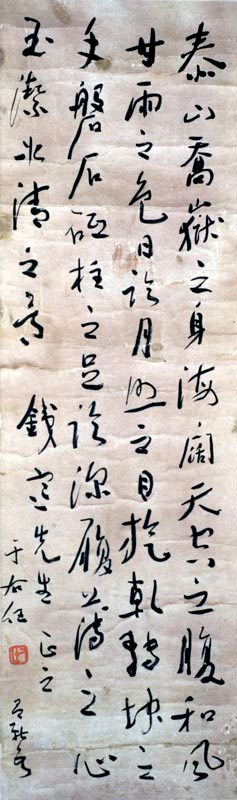 泰山喬嶽之身海闊天空之腹和風
甘雨之色日臨月照之目旋乾轉坤之
手磐石砥柱之足臨深履薄之心
玉潔冰清之骨
錢先生正之
于右任